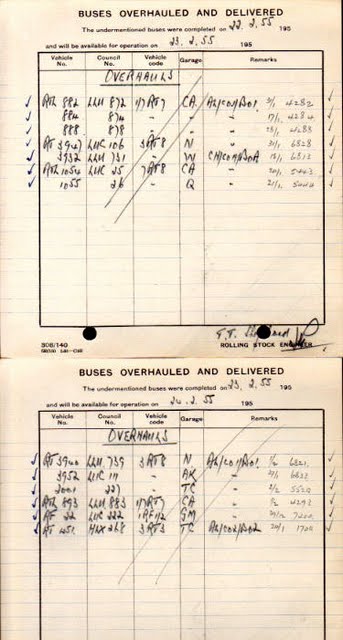 BUSES OVERHAULED AND DELIVERED
The undermentioned buses were completed on 22.2.55 195
and will be available for operation on 23.2.55 195
Vehicle No. Council No. Vehicle code Garage Remarks
OVERHAULS
RTL 882 LLU 872 1/7 RT7 CA 3/1 4282
884 874 - - " 17/1 4284
888 878 - - " 4283
RT 3947 LUC 106 3RT8 N " 31/1 6828
3932 LLU 731 - W 18/1 6813
RTL 1054 LUC 25 7RT8 CA " 20/1 5443
1055 26 - Q " 21/1 5444
ROLLING STOCK ENGINEER
308/140
BUSES OVERHAULED AND DELIVERED
The undermentioned buses were completed on 23.2.55 195
and will be available for operation on 24.2.55 195
Vehicle No. Council No. Vehicle code Garage Remarks
OVERHAULS
RT 3940 LLU 739 3RT8 N 6821
3952 LUC 111 - AK "
2001 227 - TC " 5520
RTL 893 LLU 883 1/7RT7 CA " 4293
RT 32 LUC 222 GM " 7200
RT 451 HLX 268 3RT3 TC 20/1 1700